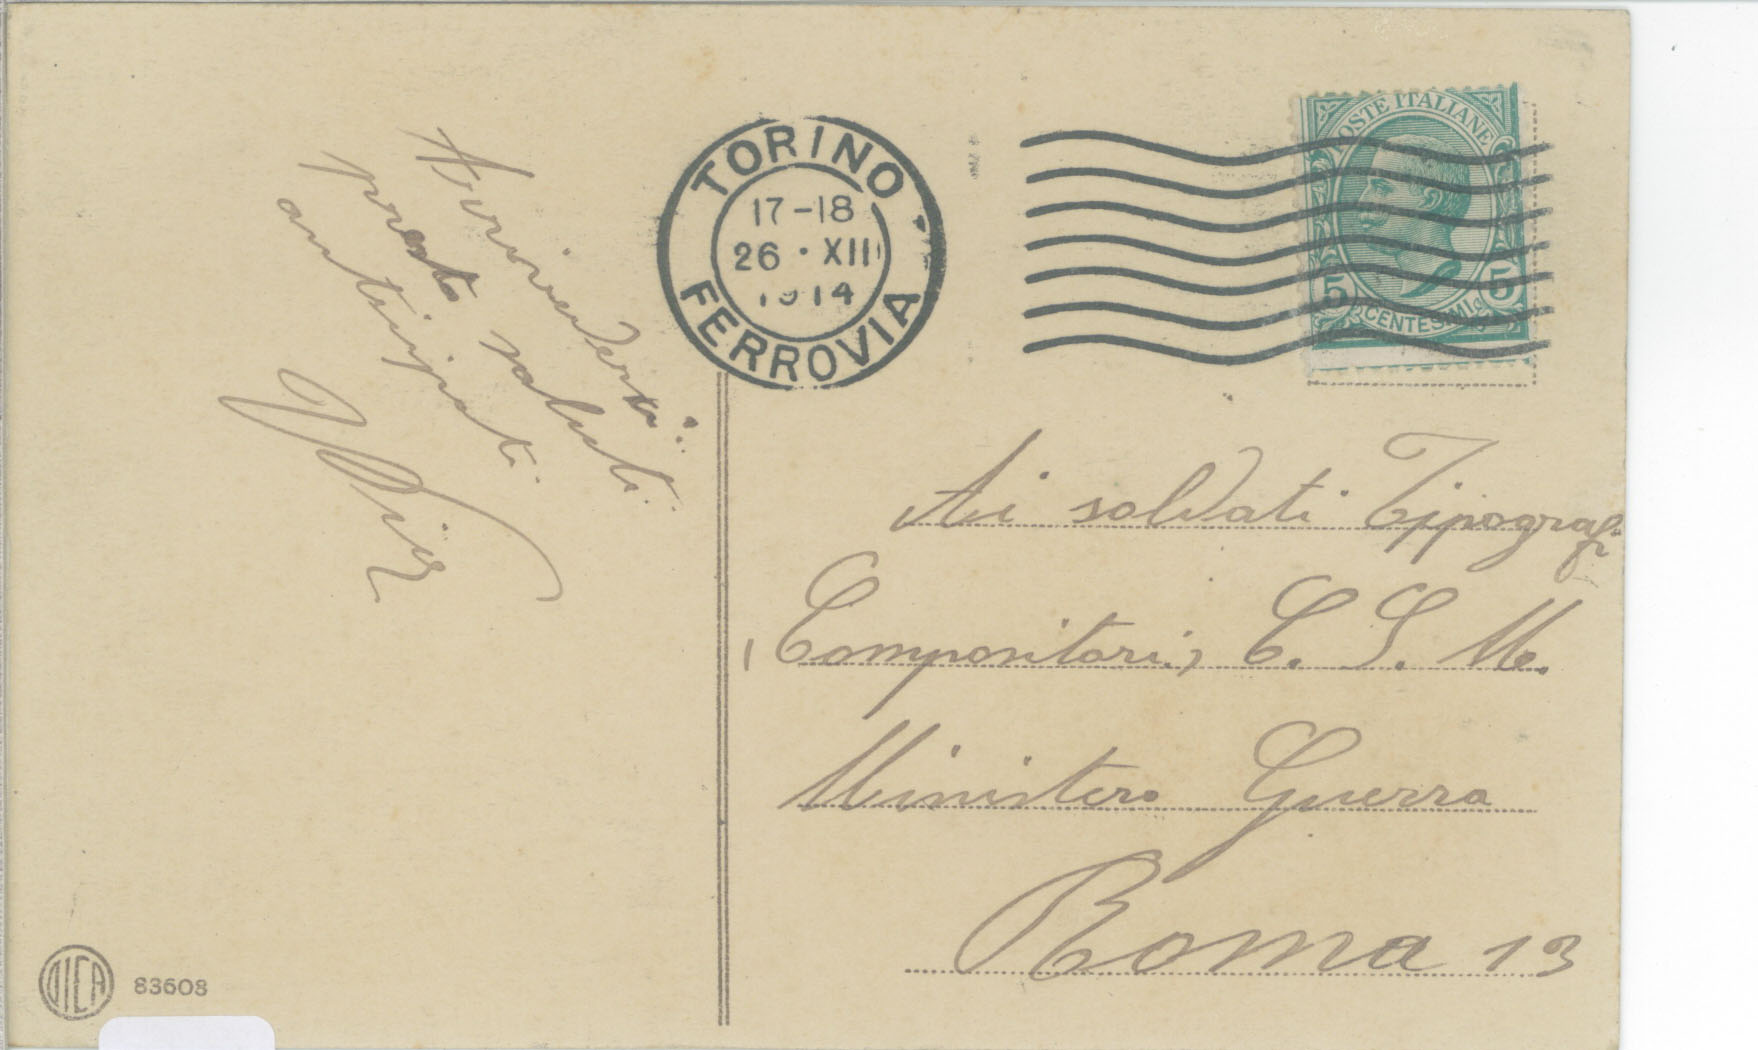 Arrivederci
presto saluti
anticipati
TORINO
17-18
26 · XII
1914
FERROVIA
POSTE ITALIANE
5 CENTESIMI 5
Ai soldati Tipografi
(Compositori) C. S. M.
Ministero Guerra
Roma 13
83608